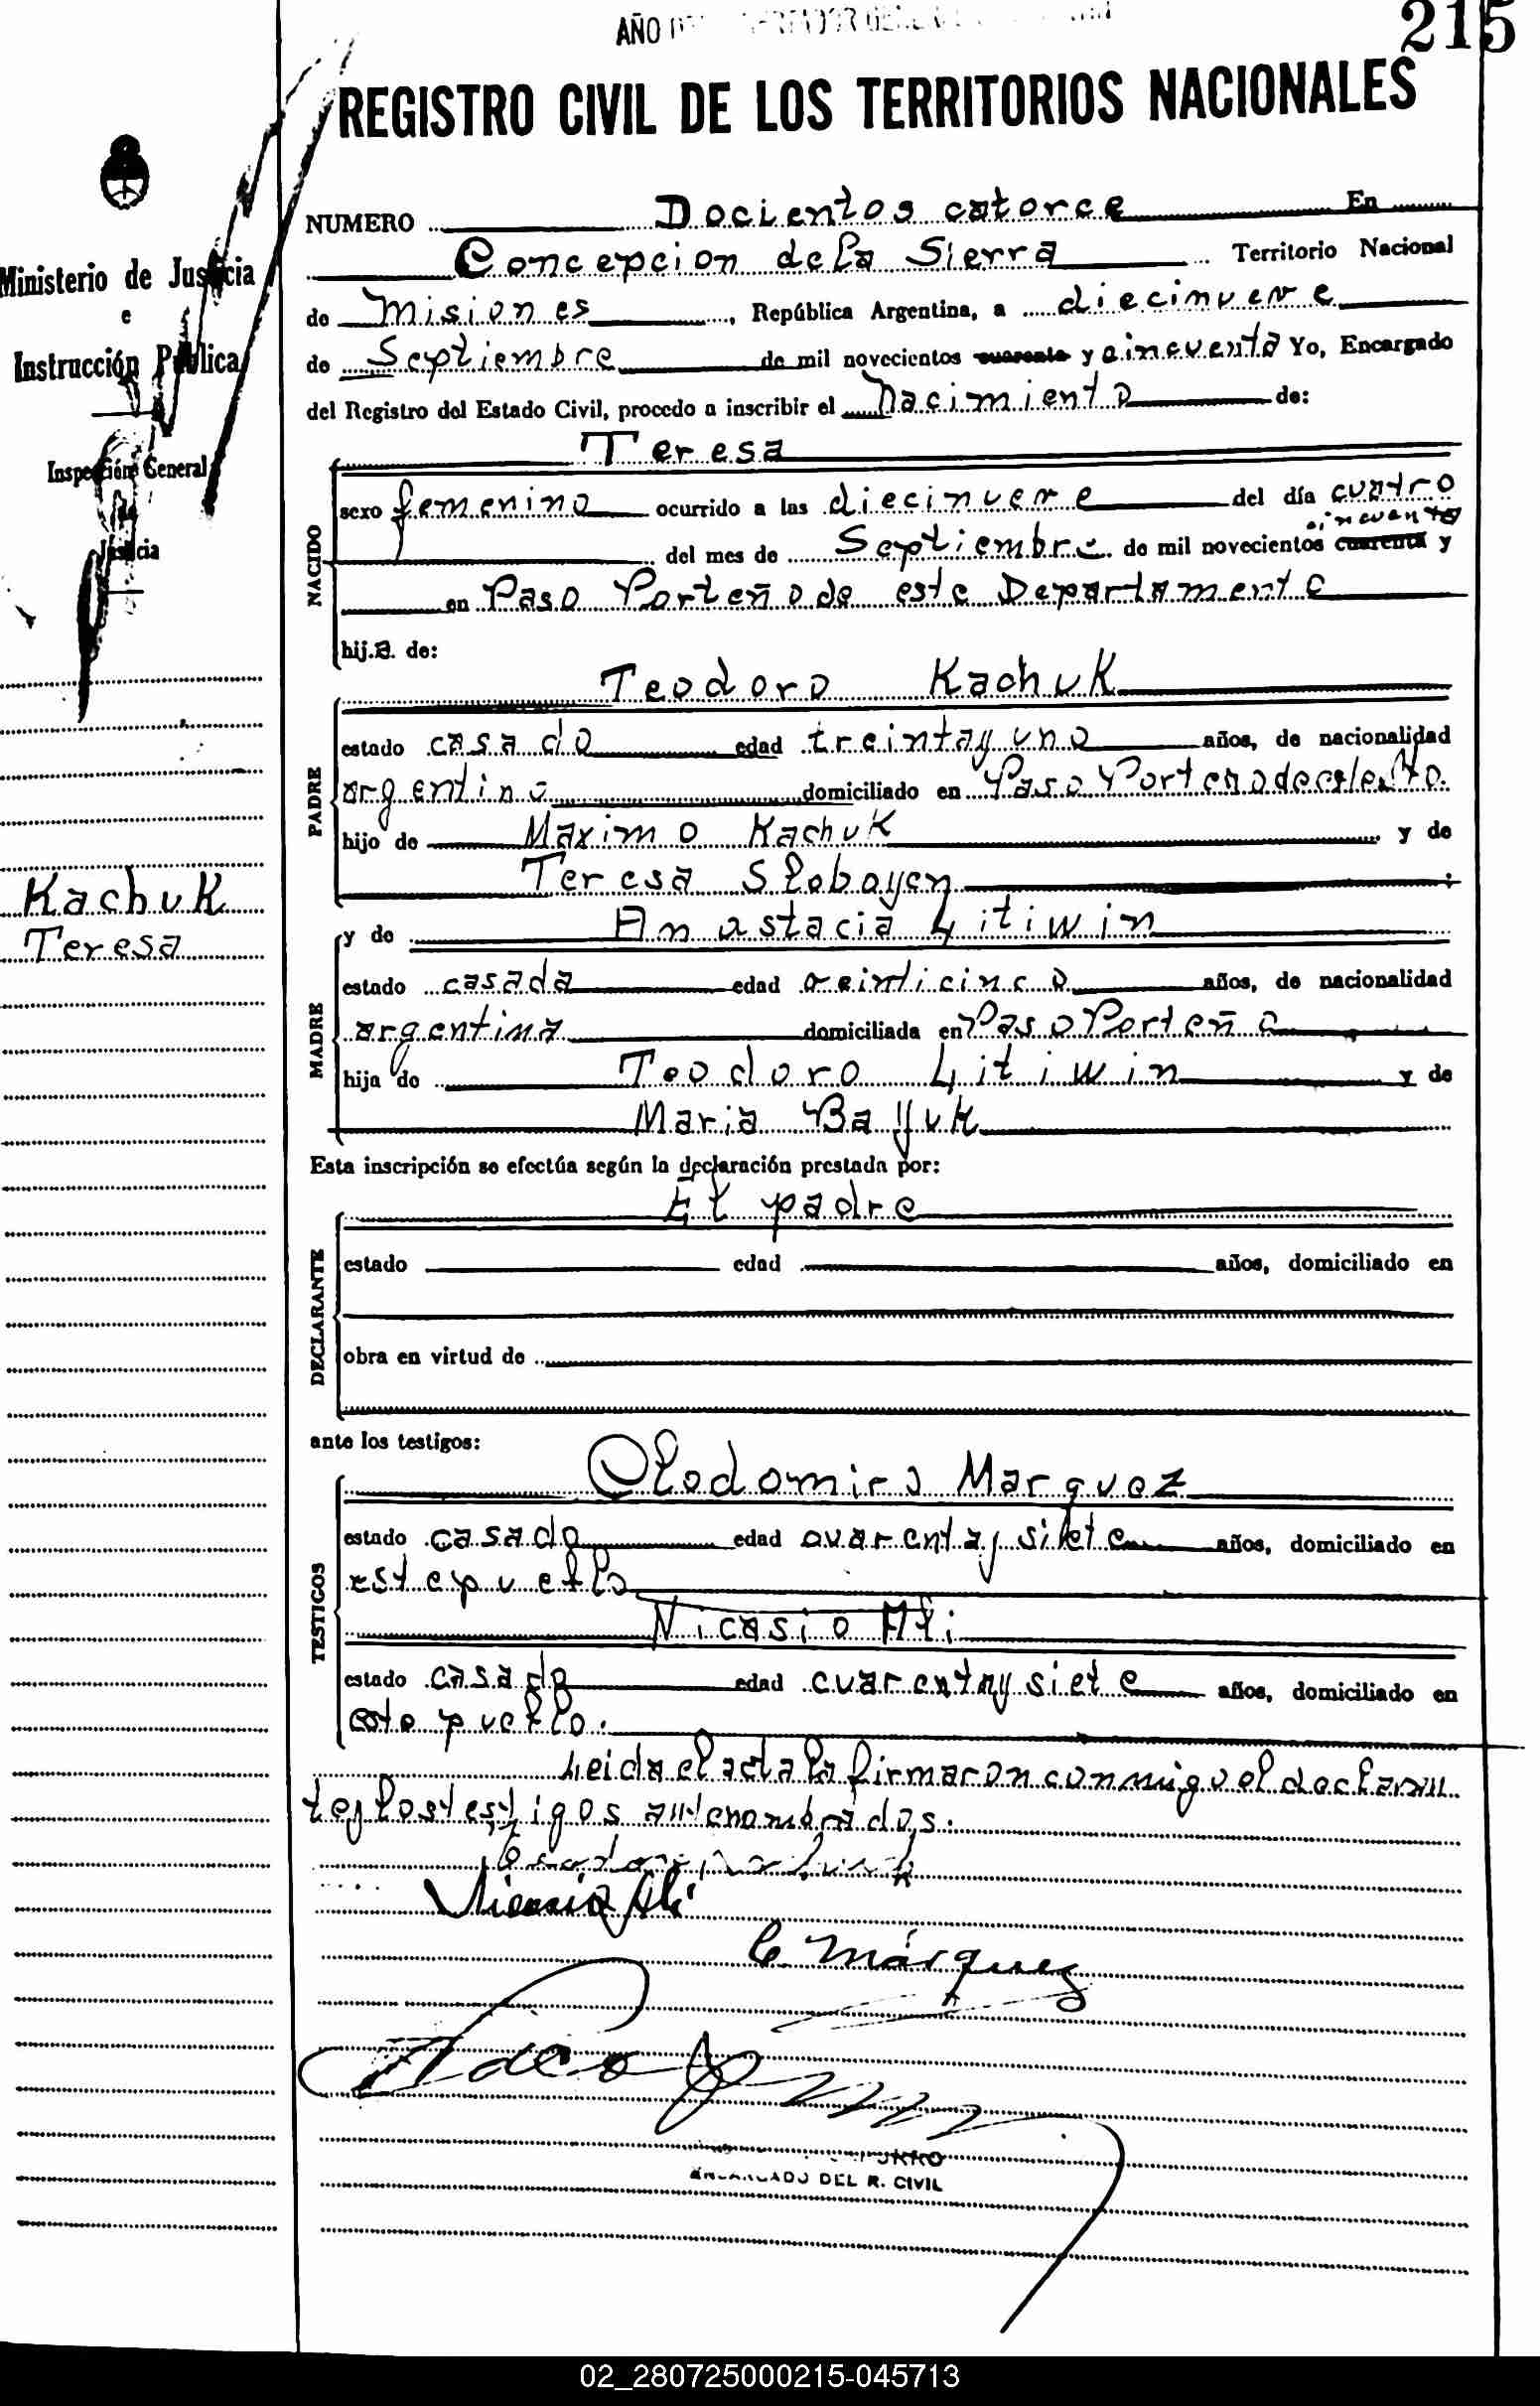 215
AÑO
REGISTRO CIVIL DE LOS TERRITORIOS NACIONALES
Ministerio de Justicia
e
Instrucción Pública
Inspección General
de
Justicia
Kachuk
Teresa
NUMERO Docientos catorce En
Concepcion de la Sierra Territorio Nacional
de Misiones, República Argentina, a diecinueve
de Septiembre de mil novecientos cuarenta y cincuenta Yo, Encargado
del Registro del Estado Civil, procedo a inscribir el nacimiento de:
NACIDO
Teresa
sexo femenino ocurrido a las diecinueve del día cuatro
cincuenta
del mes de Septiembre de mil novecientos cuarenta y
en Paso Porteño de este Departamento
hija de:
PADRE
Teodoro Kachuk
estado casado edad treintay uno años, de nacionalidad
argentino domiciliado en Paso Porteño
hijo de Maximo Kachuk y de
Teresa Sloboyen;
MADRE
y de Anastacia Litiwin
estado casada edad veinticinco años, de nacionalidad
argentina domiciliada en Paso Porteño
hija de Teodoro Litiwin y de
Maria Bayuk
Esta inscripción se efectúa según la declaración prestada por:
DECLARANTE
El padre
estado edad años, domiciliado en
obra en virtud de
ante los testigos:
TESTIGOS
Clodomiro Marquez
estado casado edad cuarentay siete años, domiciliado en
este pueblo
Nicasio Ali
estado casado edad cuarentay siete años, domiciliado en
este pueblo.
Leida el acta la firmaron conmigo el declaran
te y los testigos antenombrados.
Nicasio Ali
C. Márquez
ENCARGADO DEL R. CIVIL
02_280725000215-045713